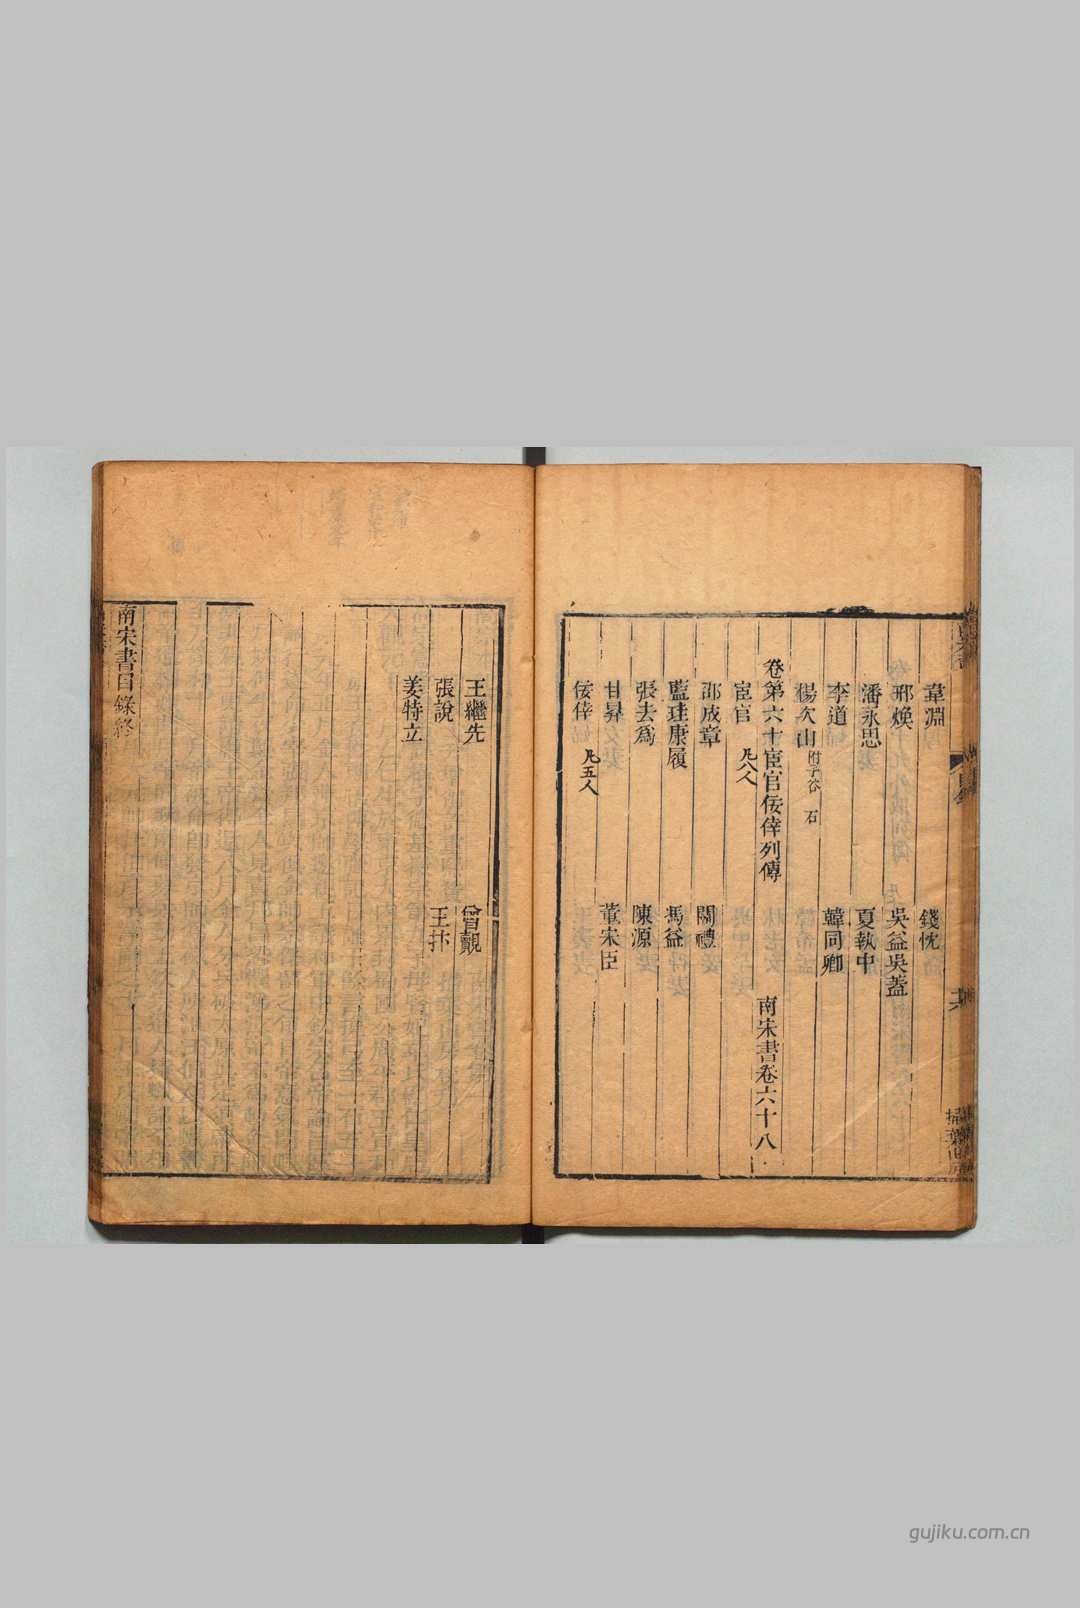 韋淵 錢忱
邢煥 吳益吳蓋
潘永思 夏執中
李道 韓同卿
楊次山 附子谷 石
卷第六十宦官佞倖列傳 南宋書卷六十八
宦官 凡八人
邵成章 關禮
藍珪康履 馮益
張去爲 陳源
甘昪 董宋臣
佞倖 凡五人
王繼先 曾覿
張說 王抃
姜特立
南宋書目錄終
gujiku.com.cn